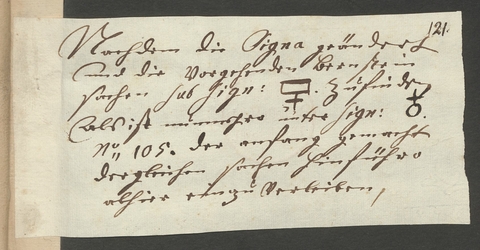 121.
Nachdem die Signa geändert
und die Vorgehenden Bernstein
sachen sub Sign: 🜿. Zufinden
Als ist nunmehro unter Sign: ♁.
No 105. der anfang gemacht
dergleichen sachen hinführo
alhier einzuverleiben,